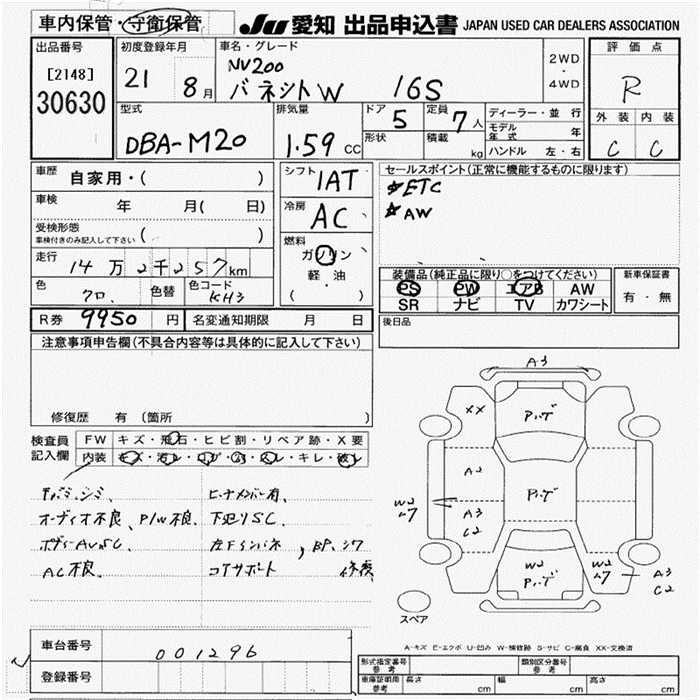 車内保管・守衛保管
JU 愛知 出品申込書 JAPAN USED CAR DEALERS ASSOCIATION
出品番号
[2148]
30630
初度登録年月
21 8月
車名・グレード
NV200
バネットW 16S
2WD
・
4WD
評価点
R
外装 内装
C C
型式
DBA-M20
排気量
1.59 CC
ドア
5
形状
定員
7人
積載
kg
ディーラー・並行
モデル年式 年
ハンドル 左・右
車歴 自家用・( )
車検 年 月( 日)
受検形態
車検付きのみ記入して下さい ( )
走行 14万2千257km
色 クロ. 色替 色コード KH3
シフト 1AT
冷房 AC
燃料
ガソリン
軽・油
( )
セールスポイント(正常に機能するものに限ります)
☆ETC
☆AW
装備品(純正品に限り○をつけてください)
PS PW エアB AW
SR ナビ TV カワシート
新車保証書
有・無
R券 9950円 名変通知期限 月 日
後日品
注意事項申告欄(不具合内容等は具体的に記入して下さい)
修復歴 有(箇所 )
検査員記入欄
FW キズ・飛石・ヒビ割・リペア跡・X要
内装 キズ・汚レ・コゲ・穴・スレ・キレ・破レ
オーディオ不良、P/W不良、
AC不良
下廻りSC.
コアサポート 修複
A3
XX
Pハゲ
A2
Pハゲ
A3
C2
W2
W2
Pハゲ
W2
A3
C2
スペア
A-キズ E-エクボ U-凹み W-補修跡 S-サビ C-腐食 XX-交換済
車台番号 001296
登録番号
型式指定番号 参考
類別区分番号 参考
車庫証明用 参考 長さ cm 幅 cm 高さ cm